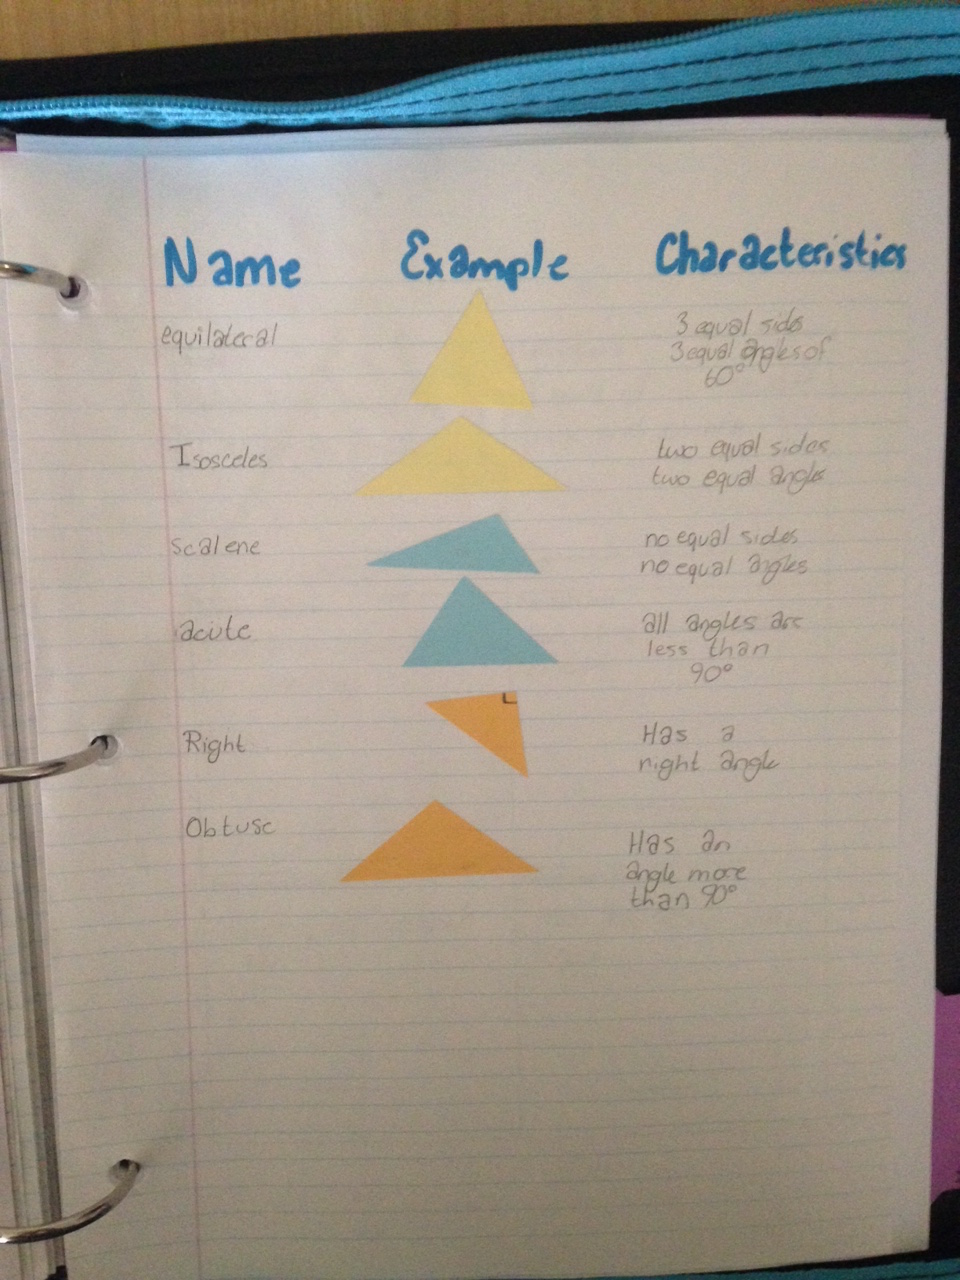 Name Example Characteristics
equilateral
3 equal sides
3 equal angles of
60°
Isosceles
two equal sides
two equal angles
scalene
no equal sides
no equal angles
acute
all angles are
less than
90°
Right
Has a
right angle
Obtuse
Has an
angle more
than 90°